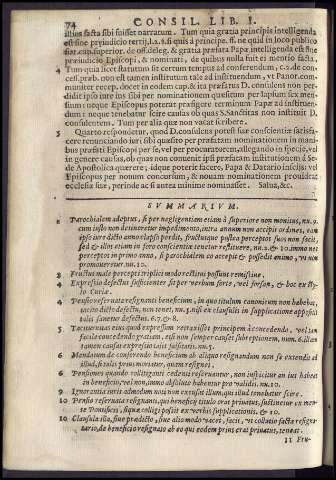 74 CONSIL. LIB. I.
illius facta sibi fuisset narratum. Tum quia gratia principis intelligenda
est sine preiudicio tertij,
si at cap. superior. de off. deleg. & gratia Papæ intelligenda est sine
præiudicio Episcopi, & nominatę, de quibus nulla fuit ei mentio facta,
4 Tum quia licet statutum sit certum tempus ad conferendum, c. 2. de con-
cess. præb. non est tamen institutum tale ad instituendum, vt Panor. com-
muniter recep. docet in eodem cap. & ita præfatus D. consulens non per-
didit ipso iure ius sibi per nominationem quæsitum per lapsum sex men-
sium: neque Episcopus poterat præfigere terminum Papæ ad instituen-
dum: neque tenebatur scire causas ob quas S. Sanctitas non instituit D.
consulentem. Tum per alia quæ non vacat scribere.
5 Quarto respondetur, quod D. consulens potest sua conscientiæ satisfa-
cere renunciando iuri sibi quæsito per præfatam nominationem in mani-
bus præfati Episcopi per se, vel per procuratorem, allegando in specie, vel
in genere causas, ob quas non conuenit ipsi præfatam institutionem à Se-
de Apostolica quærere; idque poterit facere, Papa & Datario inscijs: vel
Episcopus per nonum concursum, & nouam nominationem prouidere
ecclesiæ suæ, perinde ac si antea minimè nominasset. Salua, &c.
SVMMARIVM.
1 Parochialem adeptus, si per negligentiam etiam à superiore non monitus, nu. 9.
cum iusto non detineretur impedimento, intra annum non accipit ordines, eam
ipso iure dicto anno elapso perdit, fructusque pòstea perceptos suos non facit,
sed & illos etiam in foro conscientiæ tenetur restituere, nu. 2. & 10. immo nec
perceptos in primo anno, si parochialem eo accepit & possedit animo, vt non
promoueretur nu. 10.
2 Fructus male percepti triplici modo rectè iri possunt remissione.
3 Expressio defectus sufficienter fit per verbum forte, vel forsan, & hoc ex sty-
lo Curiæ.
4 Pensio reseruata resignanti beneficium, in quo titulum canonicum non habebat,
tacito dicto defectu, non tenet, nu. 5. nisi ex clausulis in supplicatione appositis
talis sanetur defectus. 6. 7. & 8.
5 Taciturnitas eius quod expressum retraxisset principem à concedendo, vel tam
facile concedendo gratiam, est non semper causet subreptionem, num. 6. illam
tamen causat expressio talis falsitatis. nu. 5.
6 Mandatum de conferendo beneficium ab aliquo resignandum non se extendit ad
illud, si talis prius moriatur, quam resignet.
8 Pensiones quando colitiganti cedenti reseruantur, non inspicitur an ius habeat
in beneficio, vel non, immo absolutè habentur pro validis. nu. 10.
9 Ignorantia iuris admodum noti non excusat illum, qui illud tenebatur scire.
10 Pensio reseruata resignanti, qui beneficij titulo erat priuatus, sustinetur ex men-
te Pontificis, sique colligi possit ex verbis supplicationis. & 10.
10 Clausula illa, siue prædicto, siue alio modo vacet, facit, vt collatio facta resigna-
tario, de beneficio resignato ab eo qui eodem prius erat priuatus, teneat.
11 Fru-